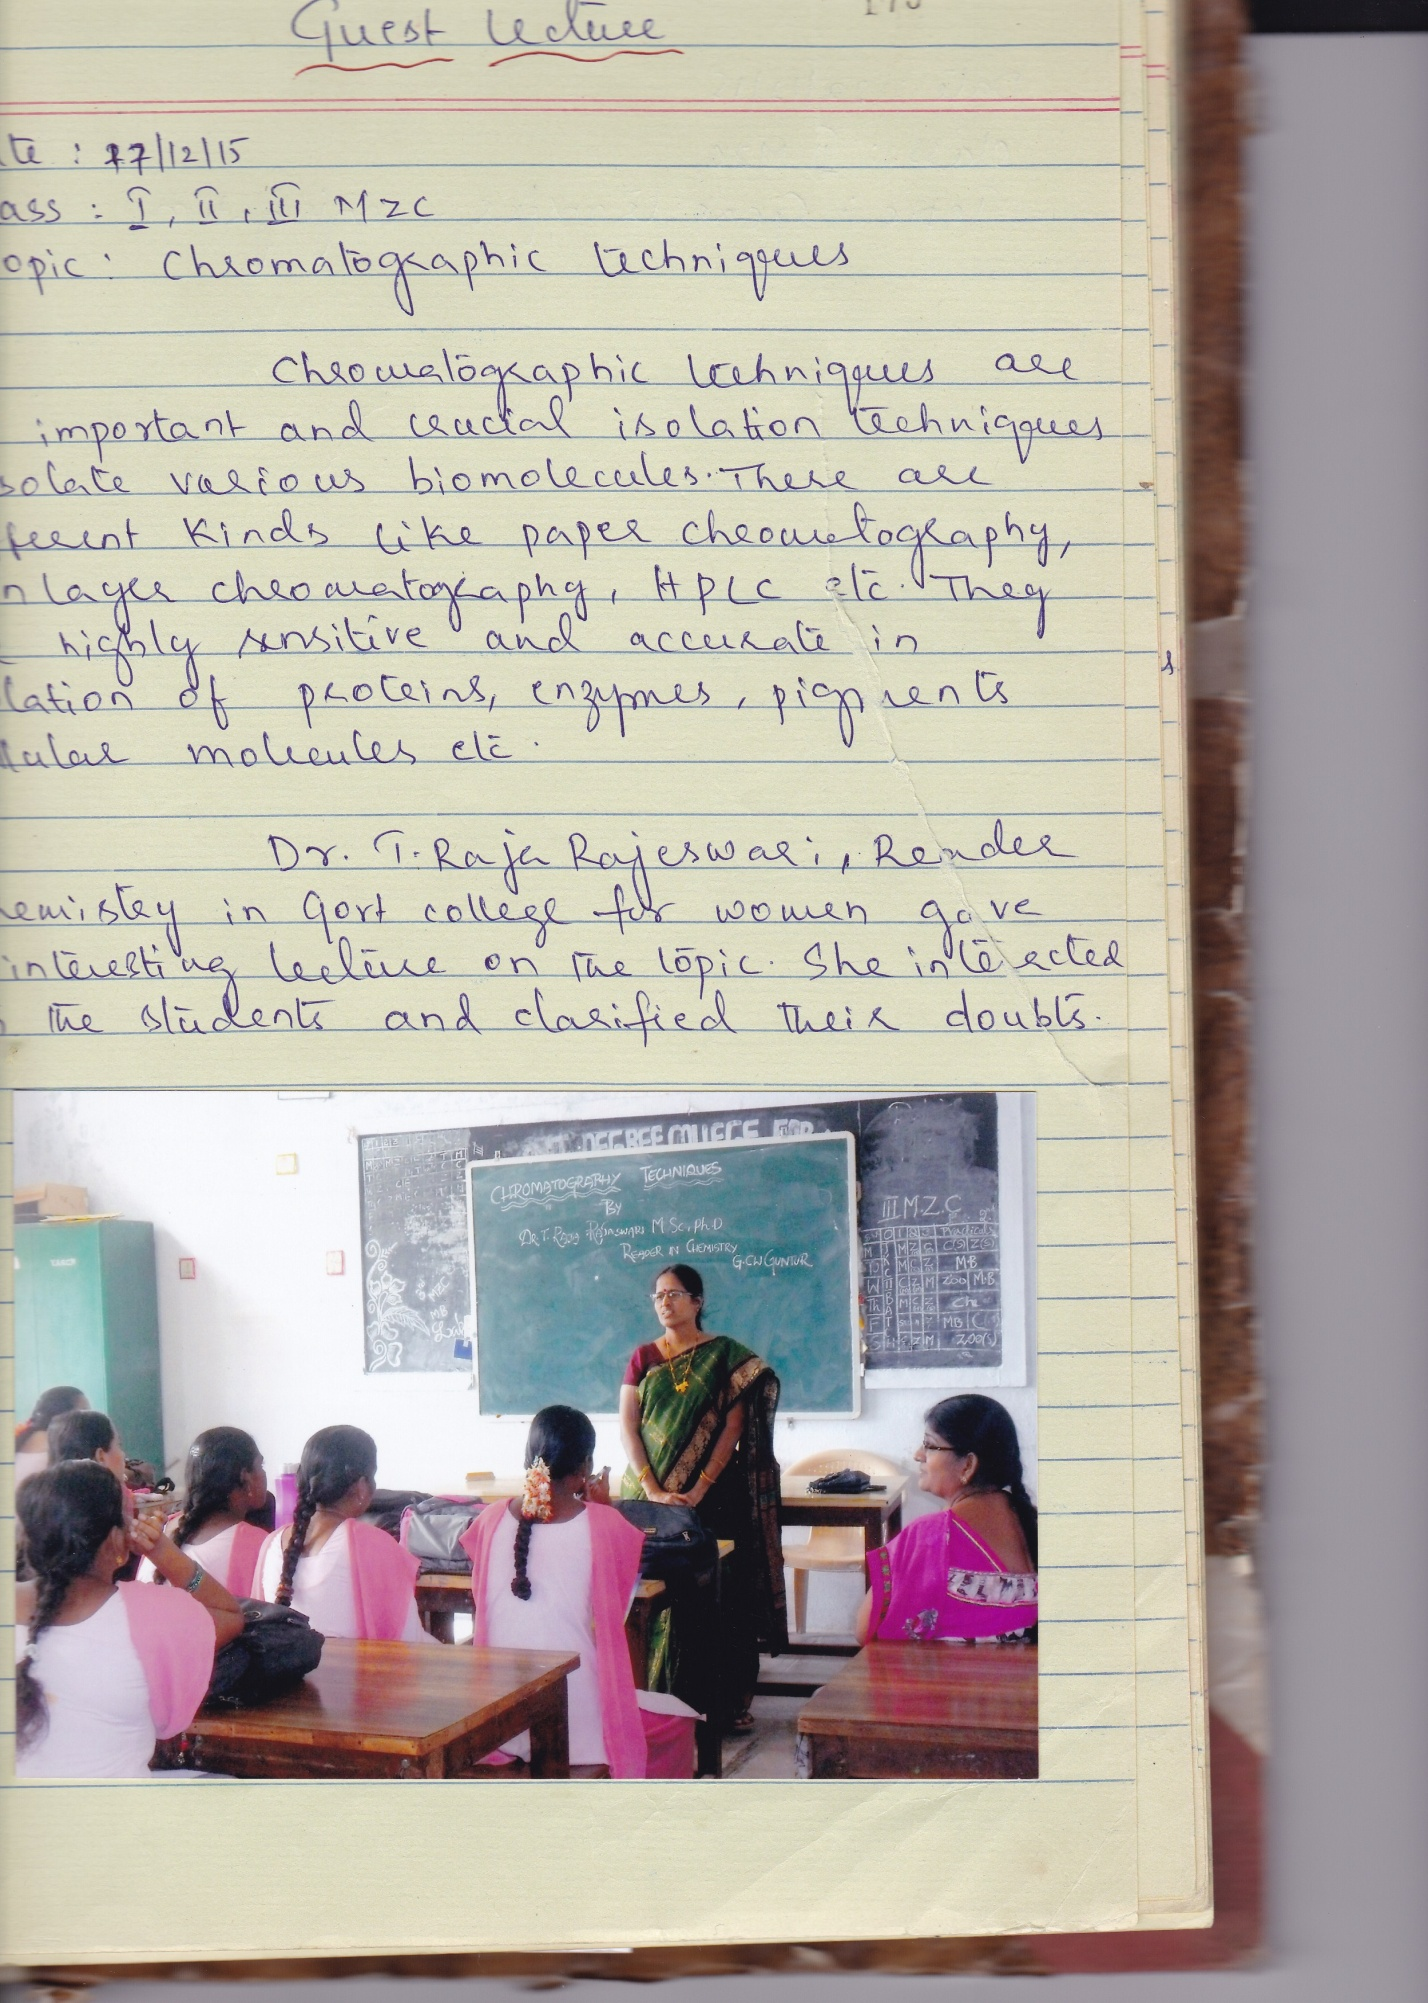 Guest Lecture
te : 17/12/15
ass : I, II, III MZC
opic : Chromatographic techniques
Chromatographic techniques are
important and crucial isolation techniques
solate various biomolecules. There are
fferent kinds like paper chromatography,
n layer chromatography, HPLC etc. They
highly sensitive and accurate in
lation of proteins, enzymes, pigments
llular molecules etc.
Dr. T. Raja Rajeswari, Reader
hemistry in Govt college for women gave
interesting lecture on the topic. She interacted
the students and clarified their doubts.
DEGREE COLLEGE FOR
CHROMATOGRAPHY TECHNIQUES
BY
Dr. T. Raja Rajaswari M.Sc, Ph.D
READER IN CHEMISTRY
G.C.W GUNTUR
III M.Z.C
M.B
ZOO M.B
Che
MB
ZOO(S)